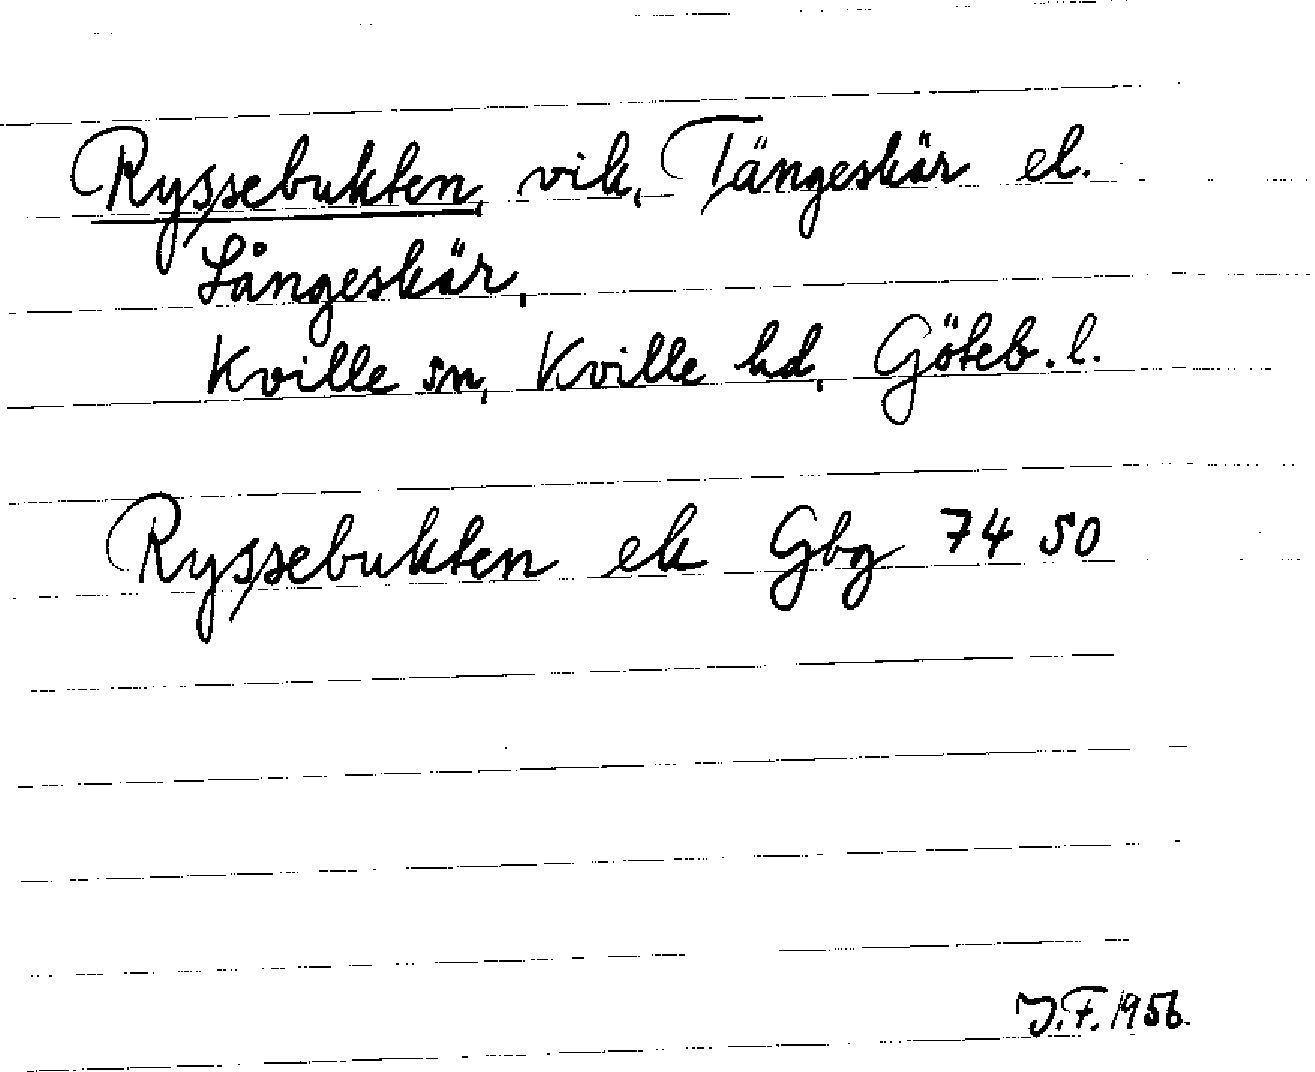 Ryssebukten, vik, Tängeskär el.
Långeskär,
Kville sn, Kville hd, Göteb. l.
Ryssebukten ek Gbg 74 50
J.F. 1956.